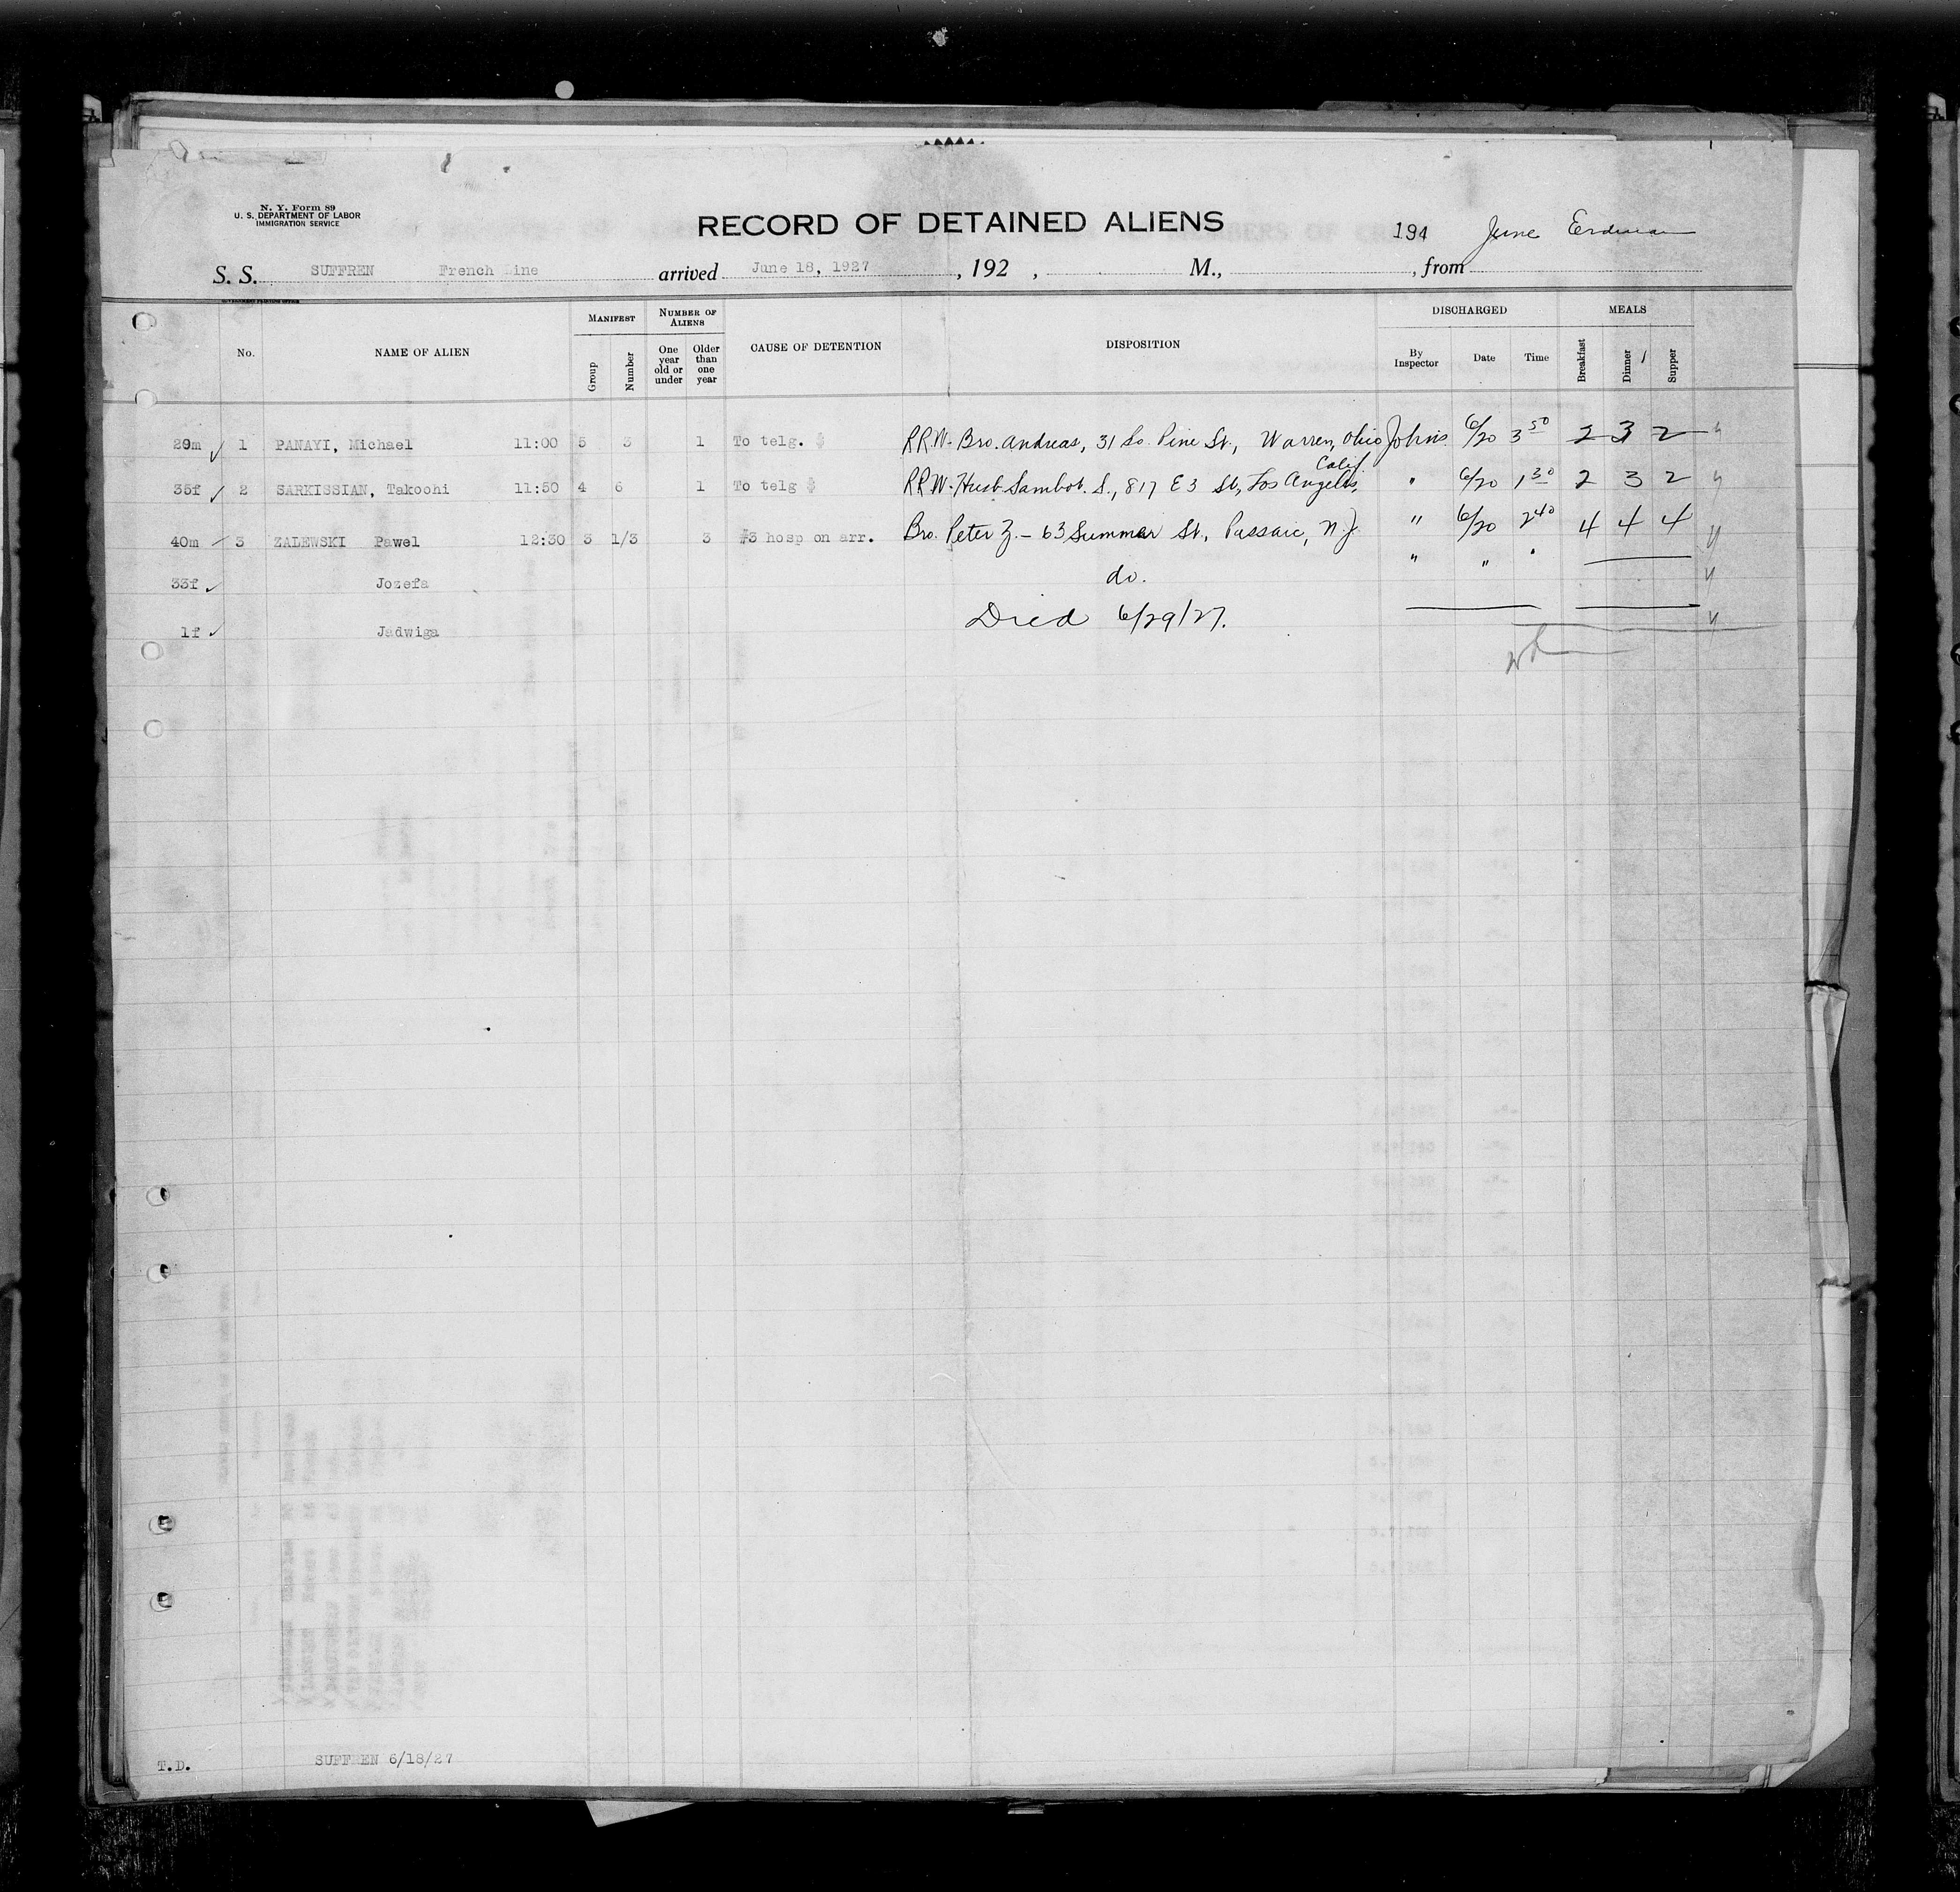 N. Y. Form 89
U. S. DEPARTMENT OF LABOR
IMMIGRATION SERVICE
RECORD OF DETAINED ALIENS
194 June
S. S. SUFFREN French Line arrived June 18, 1927, 192 , M., , from
GOVERNMENT PRINTING OFFICE
MANIFEST NUMBER OF ALIENS DISCHARGED MEALS
No. NAME OF ALIEN Group Number One year old or under Older than one year CAUSE OF DETENTION DISPOSITION By Inspector Date Time Breakfast Dinner Supper
29m ✓ 1 PANAYI, Michael 11:00 5 3 1 To telg. $ RRW. Bro. Andreas, 31 So. Pine St., Warren, Ohio Johns 6/20 3 50 2 3 2
35f ✓ 2 SARKISSIAN, Takoohi 11:50 4 6 1 To telg $ RRW. Husb. Sambot. S., 817 E 3 St., Los Angeles, Calif. " 6/20 1 30 2 3 2
40m ✓ 3 ZALEWSKI Pawel 12:30 3 1/3 3 #3 hosp on arr. Bro. Peter Z. – 63 Summer St., Passaic, N.J. " 6/20 2 40 4 4 4
33f ✓ Jozefa do. " " "
1f ✓ Jadwiga Died 6/29/27.
T.D. SUFFREN 6/18/27